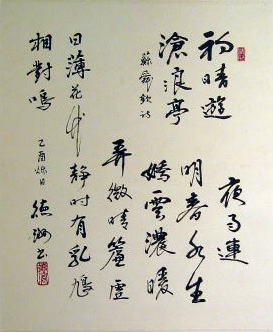 初晴遊
滄浪亭
蘇舜欽詩
夜雨連
明春水生
嬌雲濃暖
弄微晴簾虛
日薄花竹靜時有乳鳩
相對鳴
乙酉秋日
書